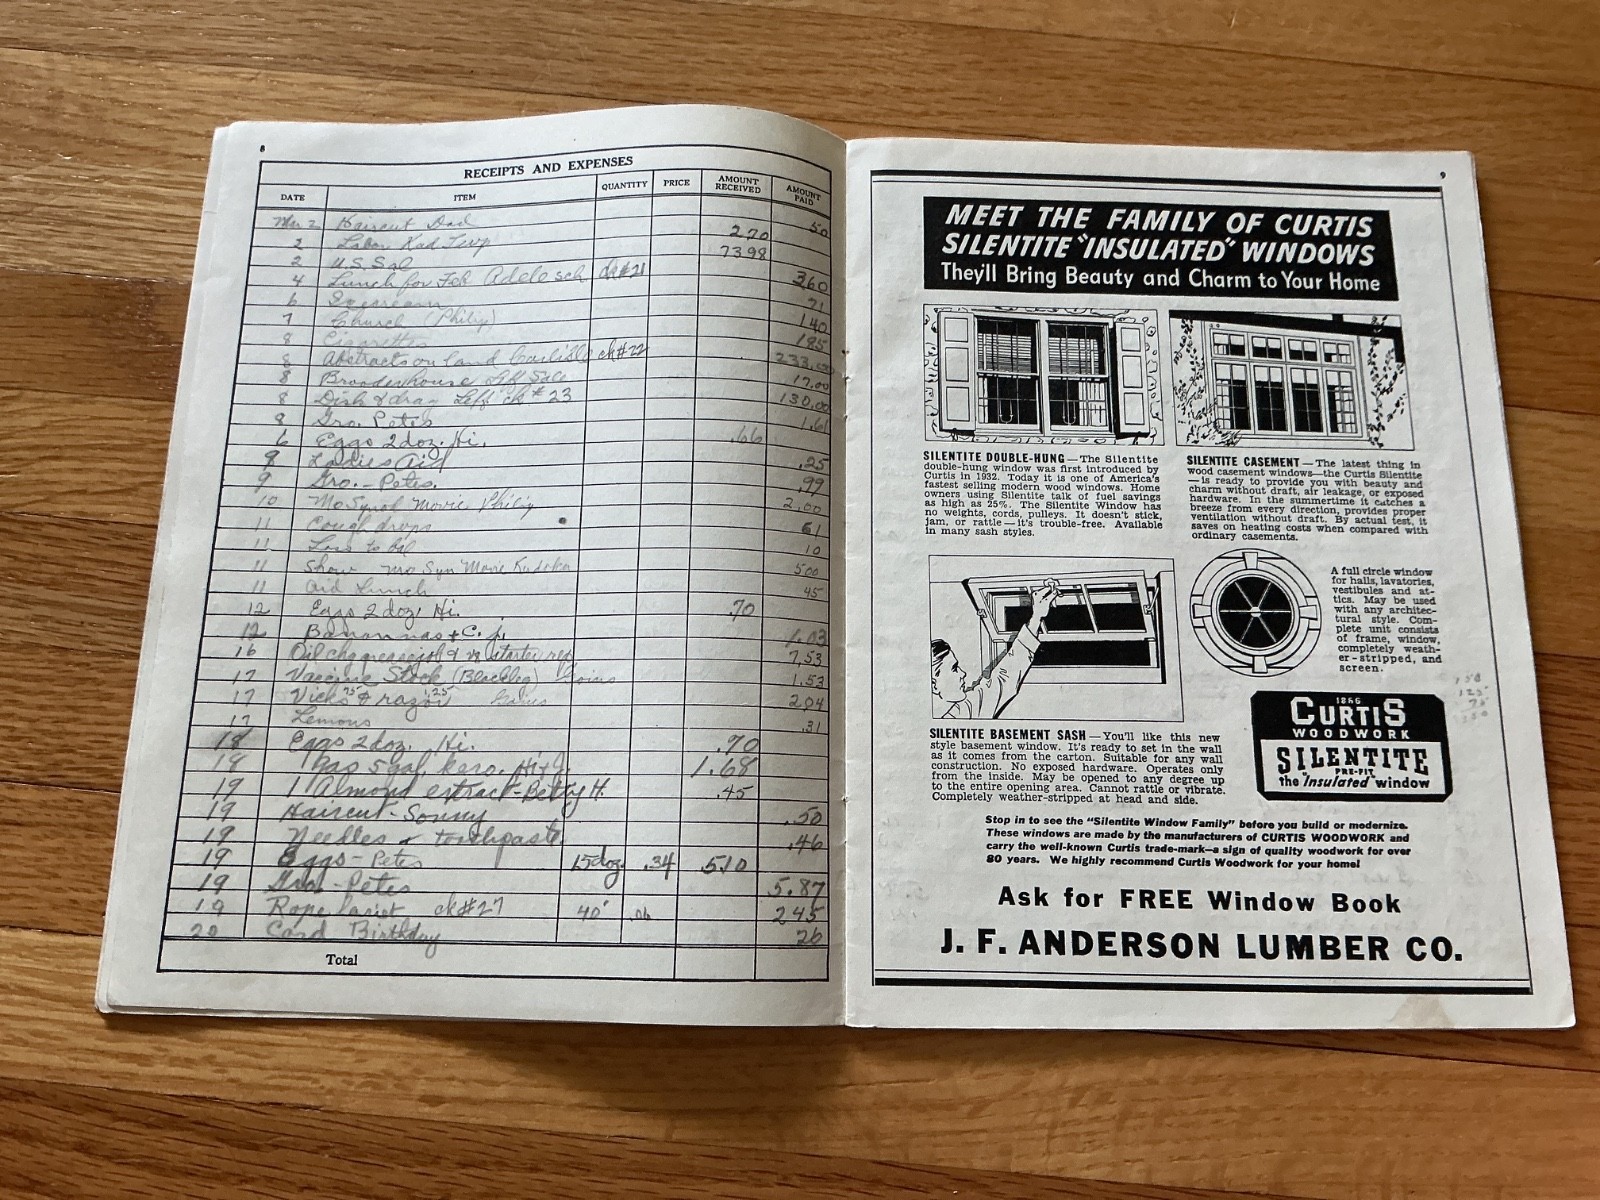 8
RECEIPTS AND EXPENSES
DATE ITEM QUANTITY PRICE AMOUNT RECEIVED AMOUNT PAID
Mar 2 Haircut Dad 50
2 Labor 2 70
2 U.S. Sal 73 98
4 Lunch for Feb Adele sch ck#21 3 60
6 71
7 Church (Philip) 1 40
8 Cigarettes 1 85
8 Abstracts on land Carlisle ck#22 233.00
8 Brooderhouse 17.00
8 Disk & drag ck#23 130.00
8 Gro. Petes 1.61
6 Eggs 2 doz. Hi. .66
9 Ladies Aid .25
9 Gro. - Petes. .99
10 Mo Synod Movie Philip 2.00
11 Cough drops 61
11 10
11 Show Mo Syn Movie 5 00
11 Aid Lunch 45
12 Eggs 2 doz. Hi. .70
12 1.03
16 starter 7.53
17 Vaccine Stock (Blackleg) 1.53
17 Vicks 75 & razor 1.25 2 04
17 Lemons .31
18 Eggs 2 doz. Hi. .70
18 Gas 5 gal. kero. 1.68
19 1 Almond extract - Betty H. .45
19 Haircut - Sonny .50
19 Needles & toothpaste .46
19 Eggs - Petes 15 doz. .34 5 10
19 Gro. - Petes 5.87
19 Rope ck#27 40' 2 45
20 Card Birthday 26
Total
9
MEET THE FAMILY OF CURTIS
SILENTITE "INSULATED" WINDOWS
They'll Bring Beauty and Charm to Your Home
SILENTITE DOUBLE-HUNG — The Silentite
double-hung window was first introduced by
Curtis in 1932. Today it is one of America's
fastest selling modern wood windows. Home
owners using Silentite talk of fuel savings
as high as 25%. The Silentite Window has
no weights, cords, pulleys. It doesn't stick,
jam, or rattle — it's trouble-free. Available
in many sash styles.
SILENTITE CASEMENT — The latest thing in
wood casement windows—the Curtis Silentite
—is ready to provide you with beauty and
charm without draft, air leakage, or exposed
hardware. In the summertime it catches a
breeze from every direction, provides proper
ventilation without draft. By actual test, it
saves on heating costs when compared with
ordinary casements.
A full circle window
for halls, lavatories,
vestibules and at-
tics. May be used
with any architec-
tural style. Com-
plete unit consists
of frame, window,
completely weath-
er-stripped, and
screen.
SILENTITE BASEMENT SASH — You'll like this new
style basement window. It's ready to set in the wall
as it comes from the carton. Suitable for any wall
construction. No exposed hardware. Operates only
from the inside. May be opened to any degree up
to the entire opening area. Cannot rattle or vibrate.
Completely weather-stripped at head and side.
1866
CURTIS
WOODWORK
SILENTITE
PRE-FIT
the "Insulated" window
Stop in to see the "Silentite Window Family" before you build or modernize.
These windows are made by the manufacturers of CURTIS WOODWORK and
carry the well-known Curtis trade-mark—a sign of quality woodwork for over
80 years. We highly recommend Curtis Woodwork for your home!
Ask for FREE Window Book
J. F. ANDERSON LUMBER CO.